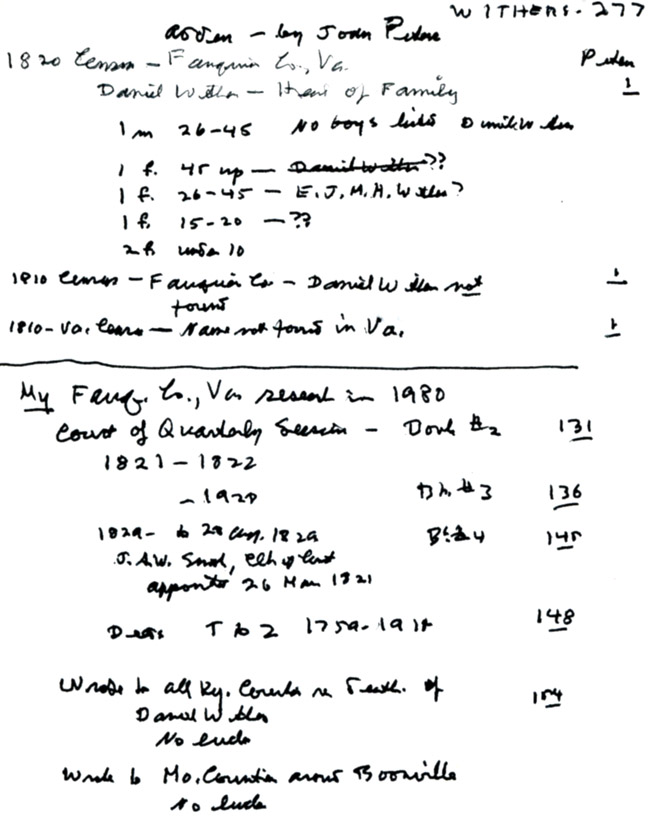 WITHERS-277
by Joan Peden
Peden
1820 Census - Fauquier Co., Va.
Daniel Withers - Head of Family 1
1 m 26-45 No boys listed
1 f. 45 up - Daniel Withers??
1 f. 26-45 - E.J.M.H. Withers?
1 f. 15-20 - ??
2 f. under 10
1810 Census - Fauquier Co - Daniel Withers not 1
found
1810-Va. Census - Name not found in Va. 1
My Fauq. Co., Va research in 1980
Court of Quarterly Session - Book #2 131
1821-1822
Bk. #3 136
1829- to 28 Aug. 1829 Bk #4 145
J.A.W. Smith, Clk of Court
appointed 26 Mar 1821
Deeds T to Z 1759-1918 148
Wrote to all Ky. Counties re Death. of 154
Daniel Withers
No luck
Wrote to Mo. Counties around Boonville
No luck